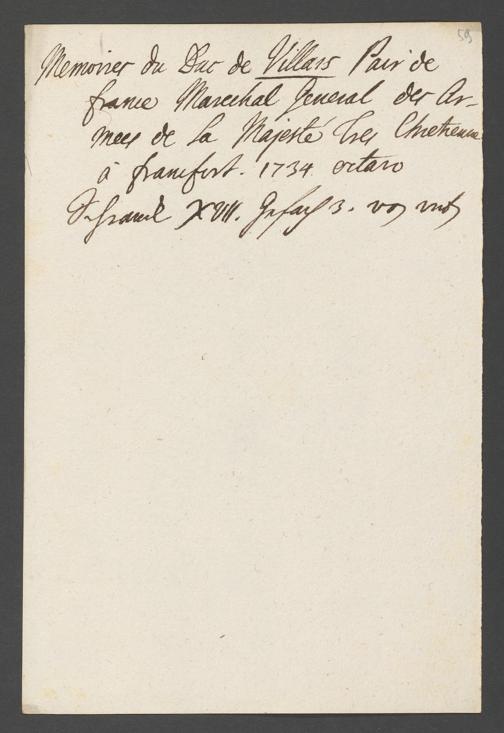 59
Memoires du Duc de Villars Pair de
france Marechal General des Ar-
mees de Sa Majesté Tres Chretienne
à francfort. 1734 octavo
XVII. 3.